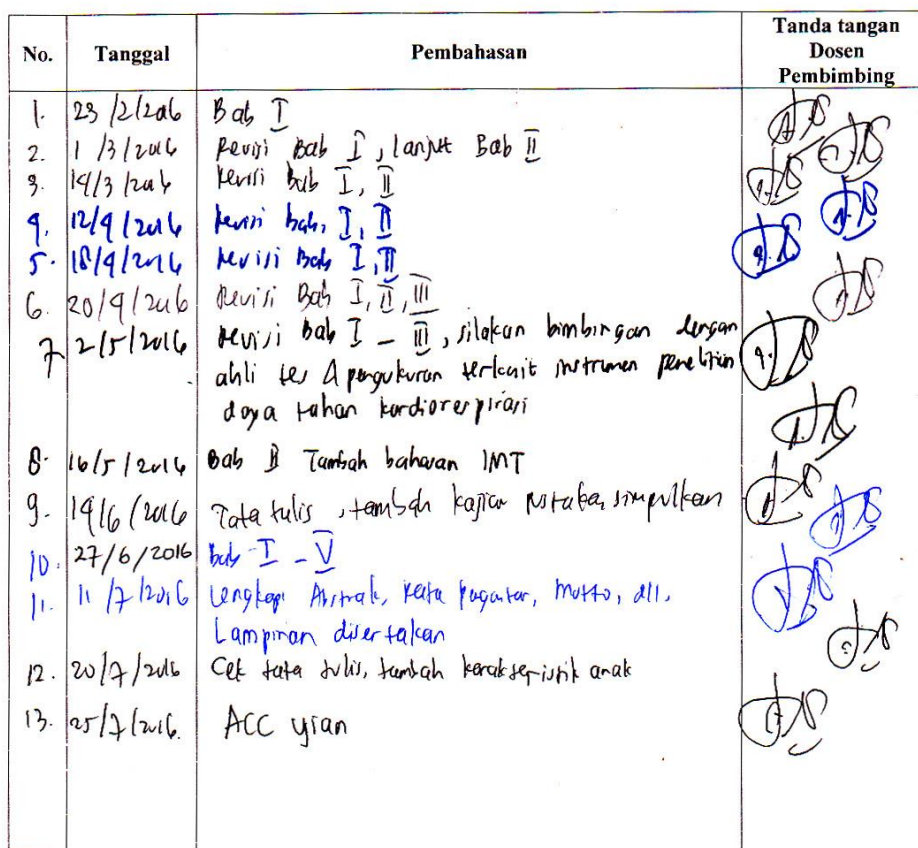 No. Tanggal Pembahasan Tanda tangan Dosen Pembimbing
1. 23/2/2016 Bab I
2. 1/3/2016 Revisi Bab I, lanjut Bab II
3. 14/3/2016 Revisi Bab I, II
4. 12/4/2016 Revisi bab I, II
5. 18/4/2016 Revisi Bab I, II
6. 20/4/2016 Revisi Bab I, II, III
7 2/5/2016 Revisi Bab I - III, silakan bimbingan dengan
ahli tes & pengukuran terkait instrumen penelitian
daya tahan kardiorespirasi
8. 16/5/2016 Bab II Tambah bahasan IMT
9. 14/6/2016 Tata tulis, tambah kajian pustaka, simpulkan
10. 27/6/2016 bab I - V
11. 11/7/2016 Lengkapi Abstrak, kata pegantar, motto, dll,
Lampiran disertakan
12. 20/7/2016 Cek tata tulis, tambah karakteristik anak
13. 25/7/2016. ACC ujian